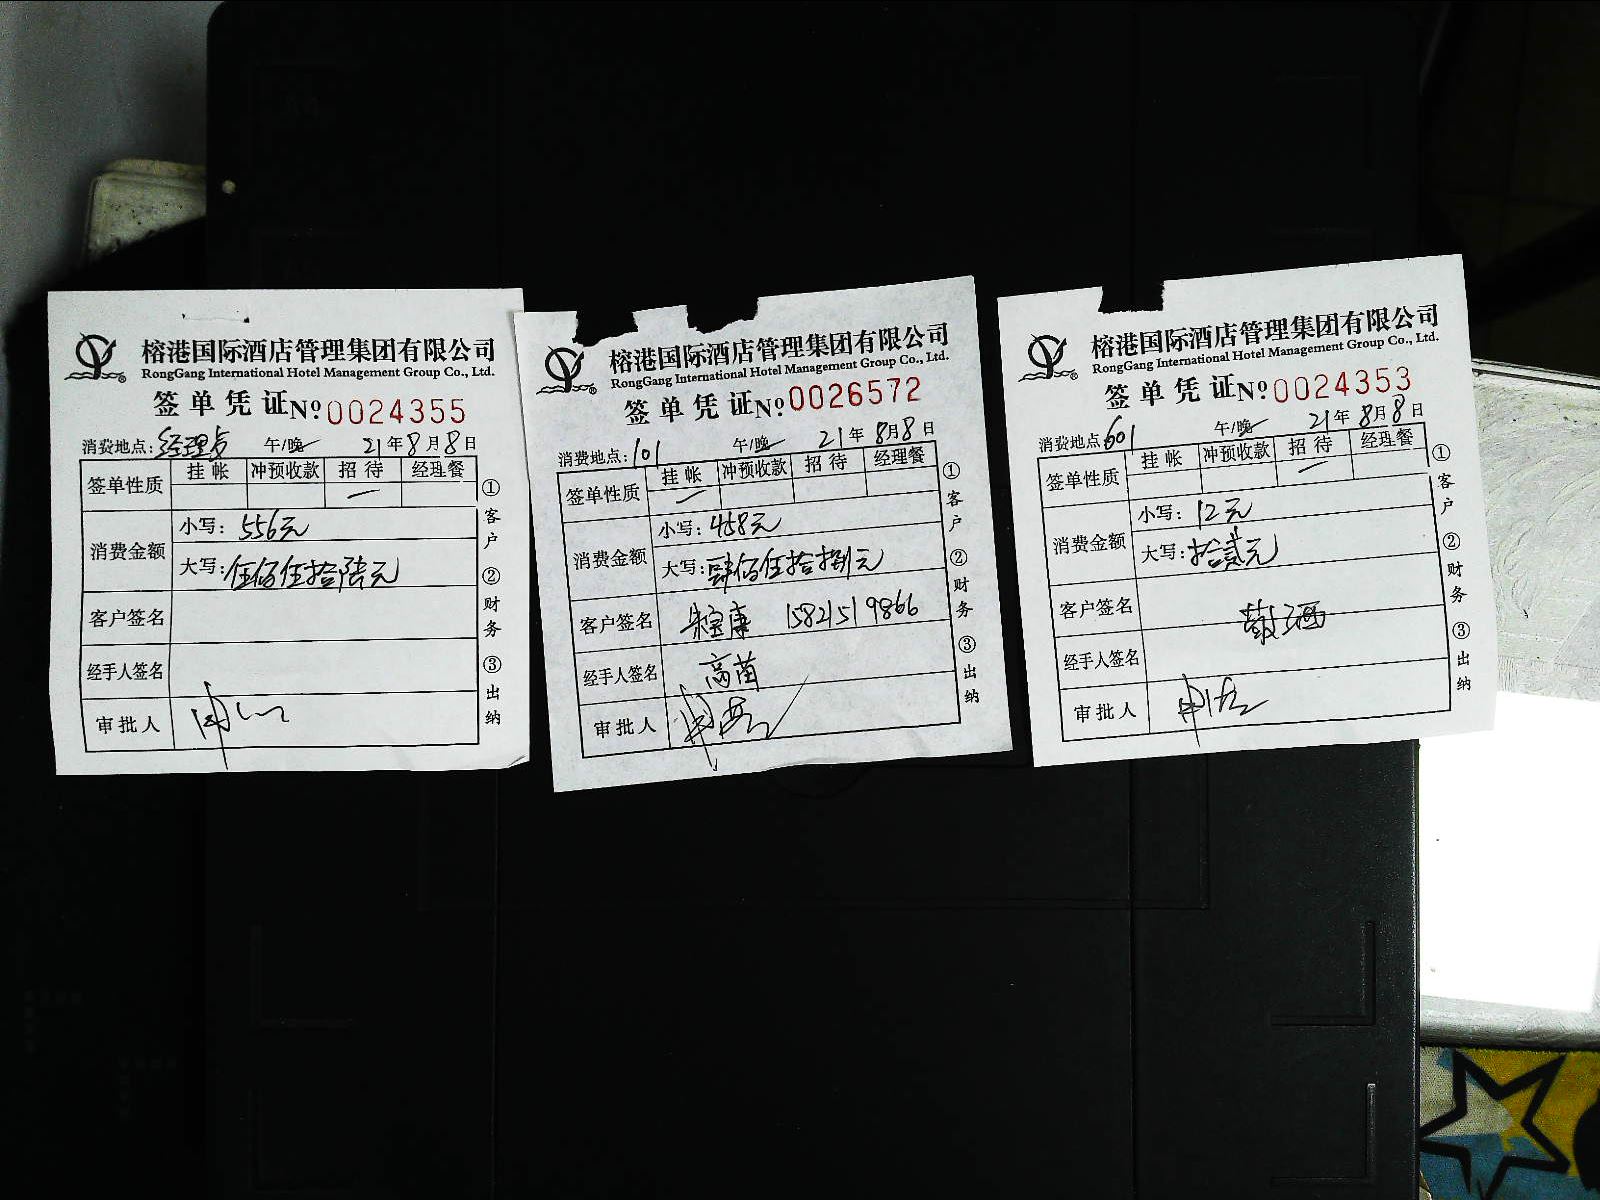 榕港国际酒店管理集团有限公司
RongGang International Hotel Management Group Co., Ltd.
签单凭证 Nº 0024355
消费地点: 经理 午/晚 21年8月8日
签单性质 挂帐 冲预收款 招待 经理餐
消费金额
小写: 556元
大写: 伍佰伍拾陆元
客户签名
经手人签名
审批人
①客户 ②财务 ③出纳
榕港国际酒店管理集团有限公司
RongGang International Hotel Management Group Co., Ltd.
签单凭证 Nº 0026572
消费地点: 101 午/晚 21年8月8日
签单性质 挂帐 冲预收款 招待 经理餐
消费金额
小写: 458元
大写: 肆佰伍拾捌元
客户签名 15821519866
经手人签名 高苗
审批人
①客户 ②财务 ③出纳
榕港国际酒店管理集团有限公司
RongGang International Hotel Management Group Co., Ltd.
签单凭证 Nº 0024353
消费地点: 601 午/晚 21年8月8日
签单性质 挂帐 冲预收款 招待 经理餐
消费金额
小写: 12元
大写: 拾贰元
客户签名
经手人签名
审批人
①客户 ②财务 ③出纳